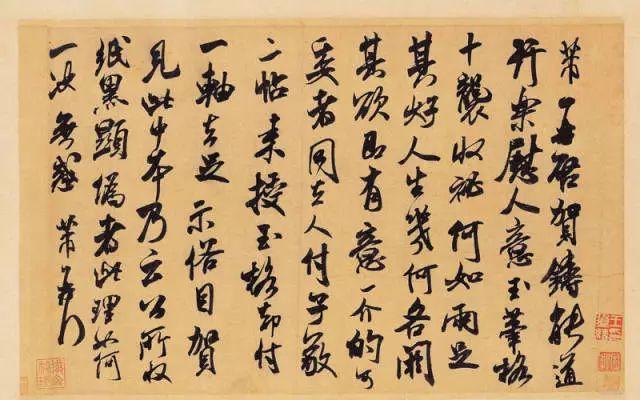 芾再啟賀鑄能道
行樂慰人意玉筆格
十襲收祕何如兩足
其好人生幾何各闕
其欲即有意一介的可
委者同去人付子敬
二帖來授玉格却付
一軸去足示俗目賀
見此中本乃云公所收
紙黑顯偽者此理如何
一決無惑 芾再行